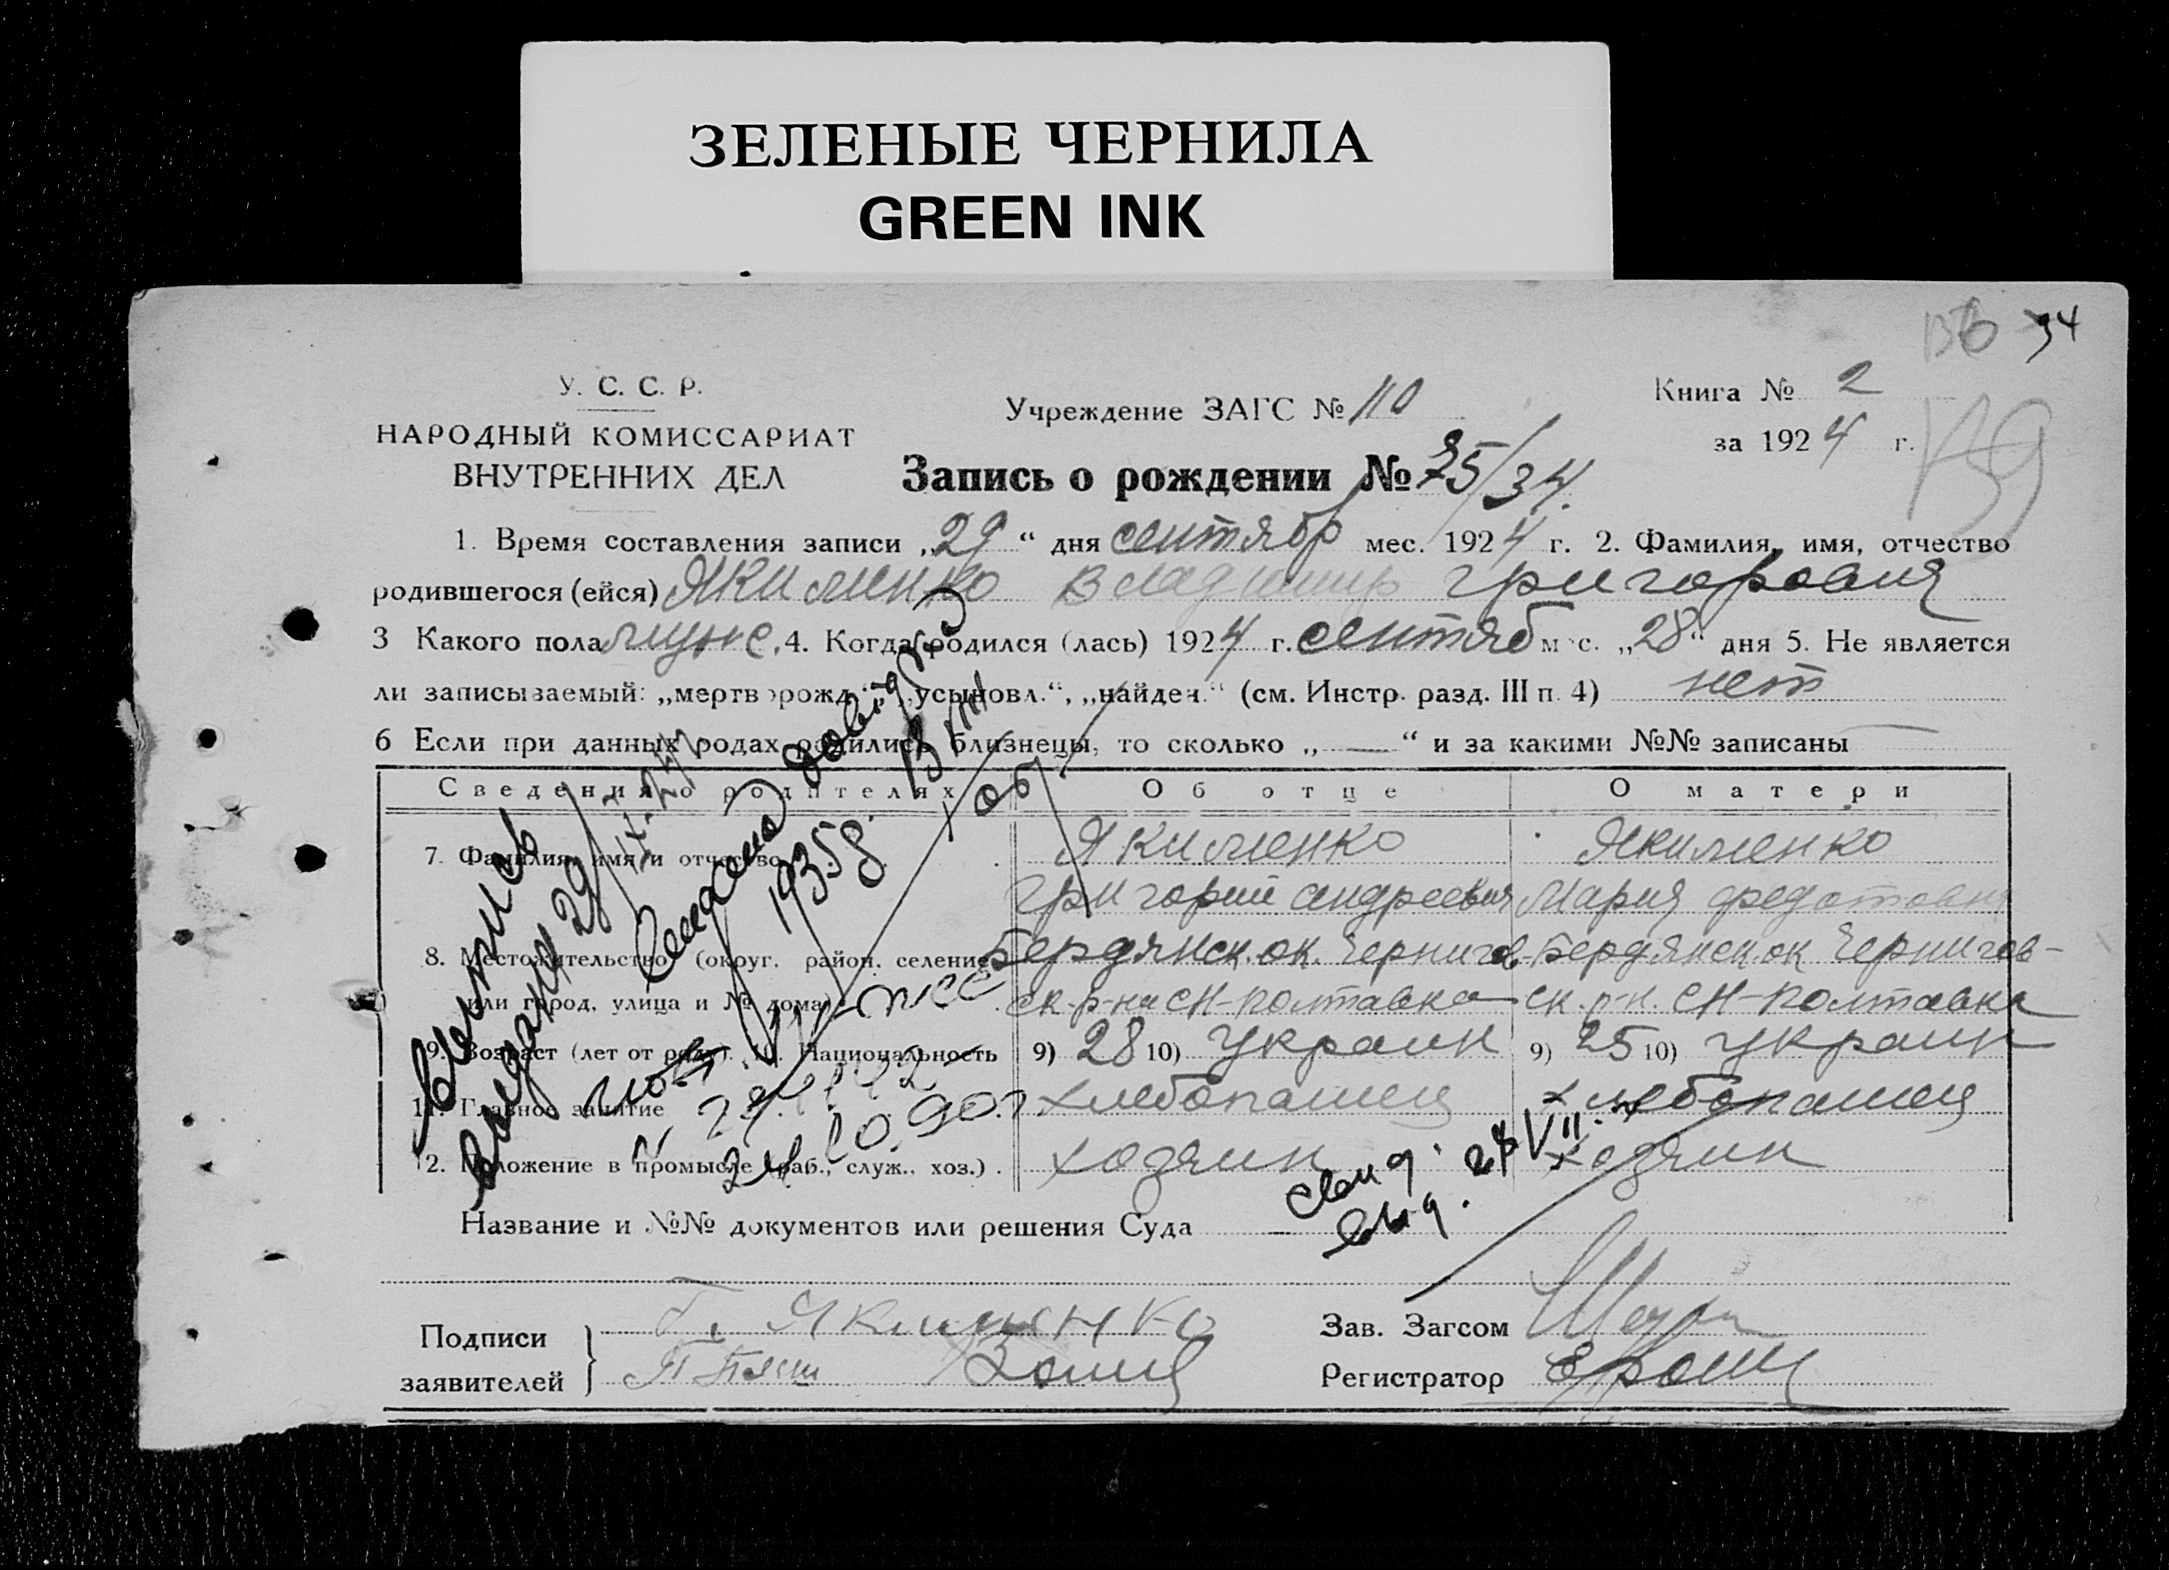 ЗЕЛЕНЫЕ ЧЕРНИЛА
GREEN INK
34
У. С. С. Р.
НАРОДНЫЙ КОМИССАРИАТ
ВНУТРЕННИХ ДЕЛ
Учреждение ЗАГС № 110
Книга № 2
за 1924 г.
Запись о рождении № 35/34.
1. Время составления записи „29“ дня сентябр мес. 1924 г. 2. Фамилия, имя, отчество
родившегося (ейся) Якименко Владимир Григоровия
3 Какого пола мужс. 4. Когда родился (лась) 1924 г. сентяб мес. „28“ дня 5. Не является
ли записываемый: „мертворожд.“, „усыновл.“, „найден.“ (см. Инстр. разд. III п. 4) нет
6 Если при данных родах родились близнецы, то сколько „—“ и за какими №№ записаны
Сведения о родителях Об отце О матери
7. Фамилия, имя и отчество Якименко Якименко
Григорий Андреевия Мария Федотовна
8. Местожительство (округ, район, селение Бердянск. ок. Чернигов Бердянск. ок Чернигов-
или город, улица и № дома) ск. р-на СН-Полтавка ск. р-н. СН-Полтавка
9. Возраст (лет от роду). 10. Национальность 9) 28 10) Украин 9) 25 10) Украин
11. Главное занятие хлебопашец хлебопашец
12. Положение в промысле (раб., служ., хоз.) хозяин хозяин
Выпись
выдана 29
1935
24.10.90.
свид.
выд. 28/VII
Название и №№ документов или решения Суда —
Подписи заявителей Г. Якименко
Зав. Загсом
Регистратор